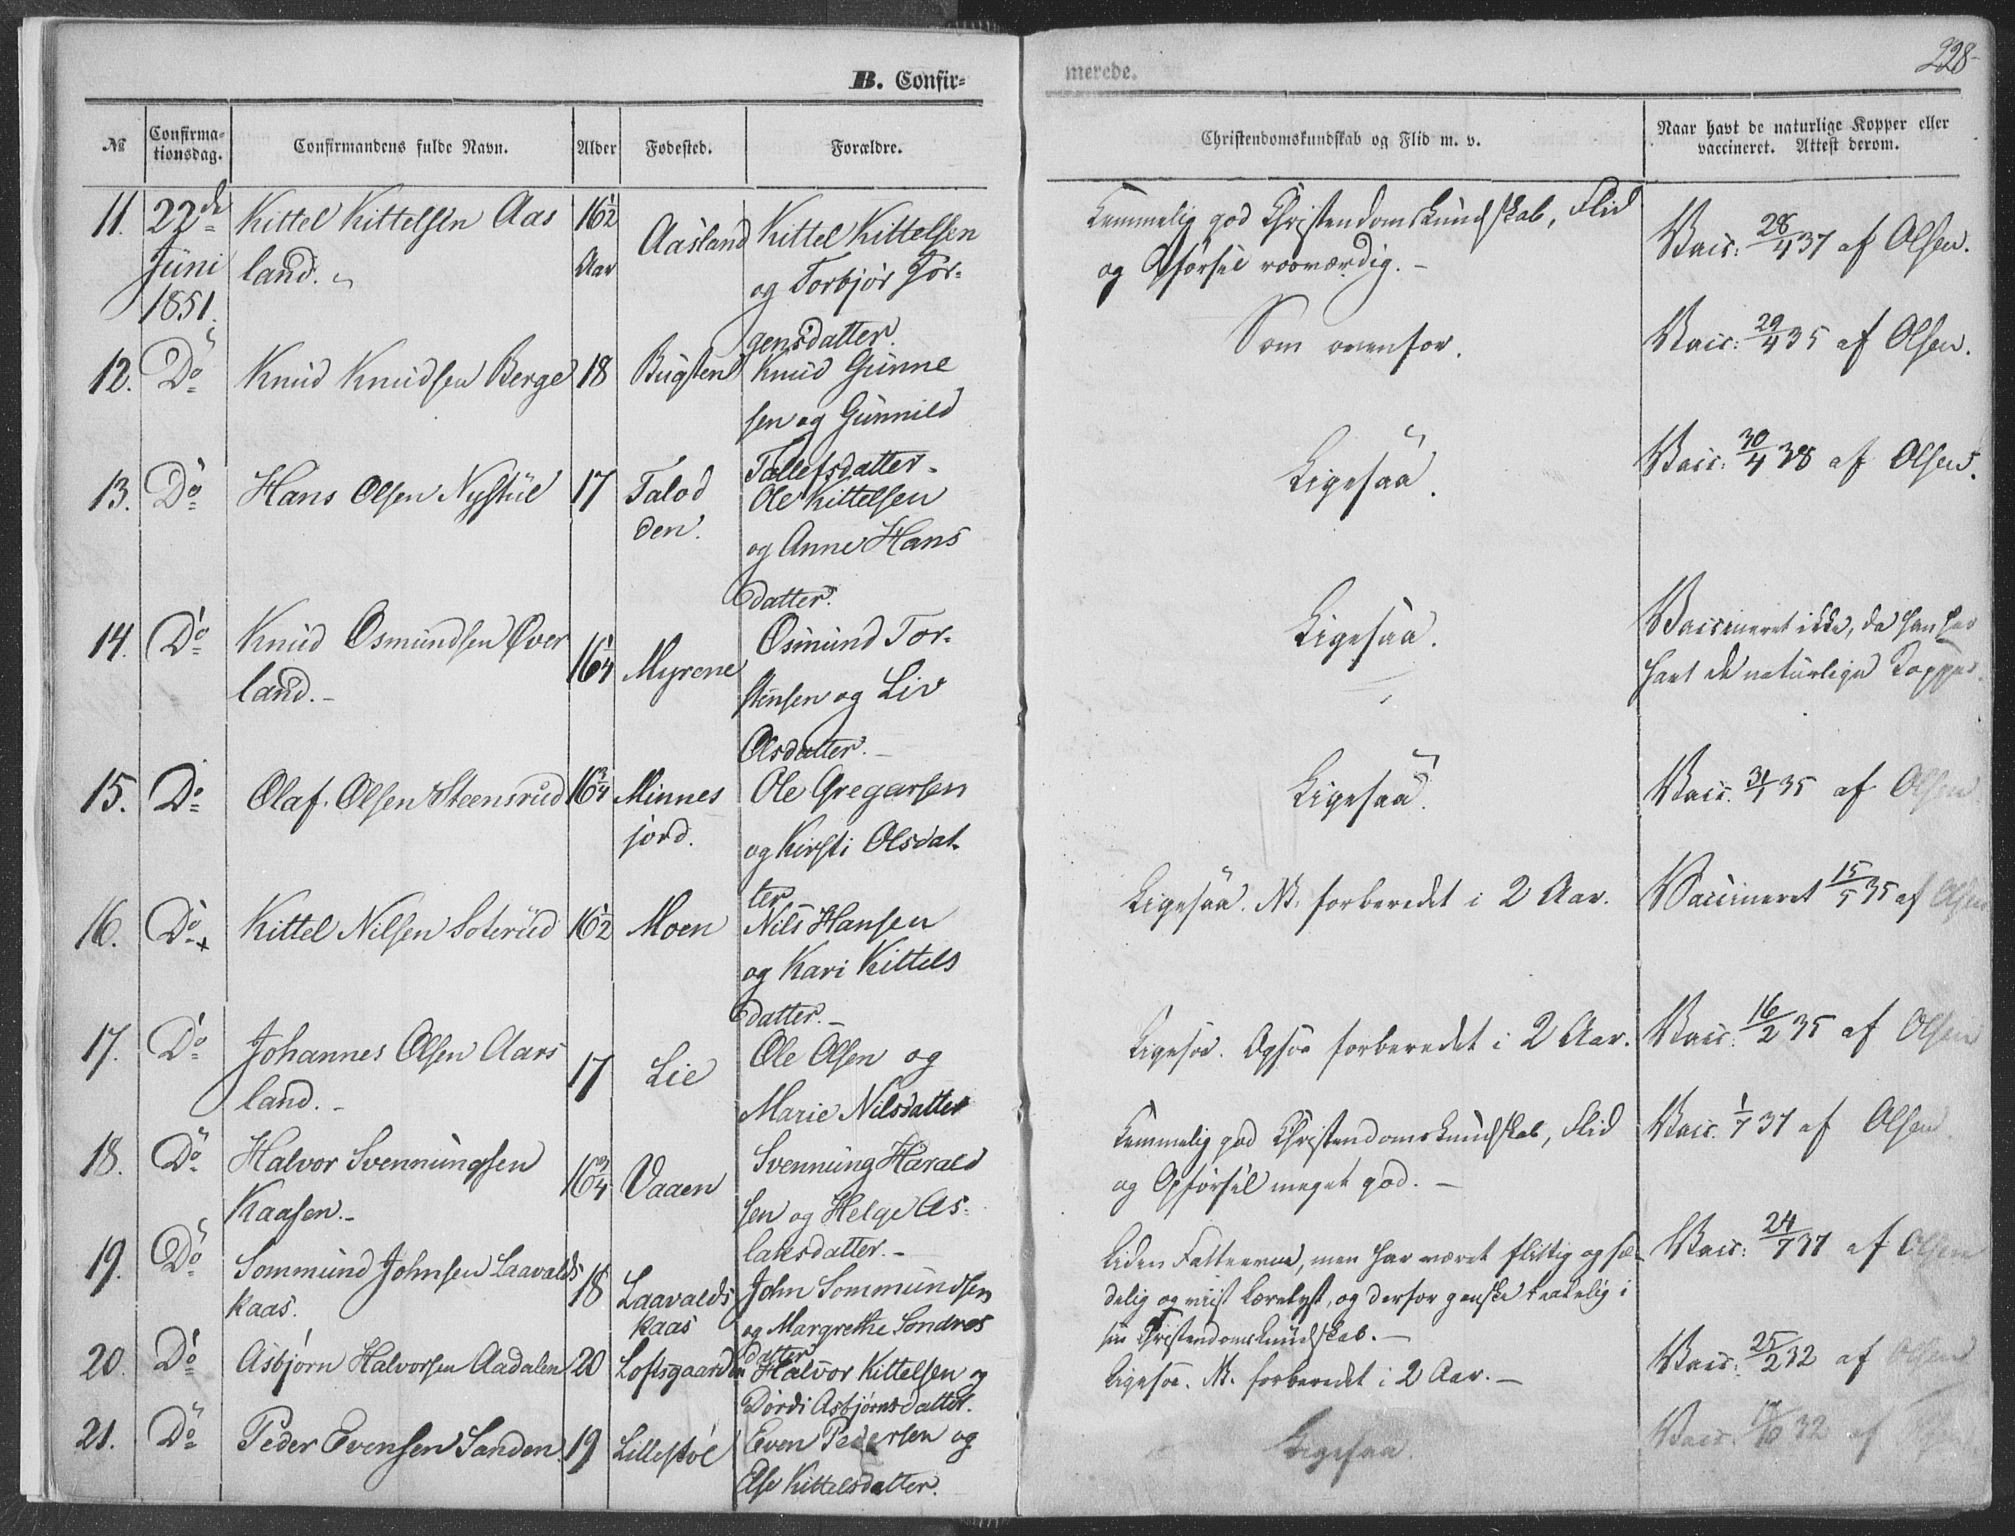 228
B. Confirmerede.
№ Confirmationsdag. Confirmandens fulde Navn. Alder Fødested. Forældre. Christendomskundskab og Flid m. v. Naar havt de naturlige Kopper eller vaccineret. Attest derom.
11. 22de Juni 1851. Kittel Kittelsen Aas
land. 16½ Aar Aasland Kittel Kittelsen
og Torbjør Jør-
gensdatter. Temmelig god Christendomskundskab, Flid
og Opførsel rosværdig. –
Vacc: 28/4 37 af Olsen.
12. Do Knud Knudsen Berge 18 Bugsten Knud Gunne
sen og Gunnild
Tallefsdatter. Som ovenfor.
Vacc: 29/4 35 af Olsen.
13. Do Hans Olsen Nystul 17 Talod
den. Ole Kittelsen
og Anne Hans
datter. Ligesaa.
Vacc: 30/4 38 af Olsen.
14. Do Knud Osmundsen Øver
land. – 16¼ Myrene Osmund Tor-
stensen og Liv
Olsdatter. – Ligesaa.
Vaccineret ikke, da han har
havt de naturlige Kopper.
15. Do Olaf Olsen Steensrud 16¾ Minnes
jord. Ole Gregarsen
og Kirsti Olsdat-
ter Ligesaa.
Vacc. 31/1 35 af Olsen
16. Do Kittel Nilsen Soterud 16½ Moen Nils Hansen
og Kari Kittels
datter. – Ligesaa. NB. forberedet i 2 Aar.
Vaccineret 15/5 35 af Olsen
17. Do Johannes Olsen Aars
land. – 17 Lie Ole Olsen og
Marie Nilsdatter Ligesaa. Ogsaa forberedet i 2 Aar.
Vacc. 16/2 35 af Olsen
18. Do Halvor Svennungsen
Kaasen. – 16¾ Vaaen Svennung Harald
sen og Helge As-
laksdatter. – Temmelig god Christendomskundskab, Flid
og Opførsel meget god. –
Vacc. 1/7 37 af Olsen
19. Do Sommund Johnsen Laavalds
kaas. 18 Laavalds
kaas John Sommundsen
og Margrethe Sondres
datter Liden Fatteevne, men har været flittig og sæ-
delig og viist Lærelyst, og derfor ganske taalelig i
sin Christendomskundskab. –
Vacc: 24/7 37 af Olsen
20. Do Asbjørn Halvorsen Aadalen 20 Loftsgaarden Halvor Kittelsen og
Dordi Asbjørnsdatter. Ligesaa. NB. forberedet i 2 Aar. –
Vacc: 25/2 32 af Olsen
21. Do Peder Evensen Sanden 19 Lillestøl Even Pedersen og
Else Kittelsdatter. Ligesaa.
Vacc. 32 af